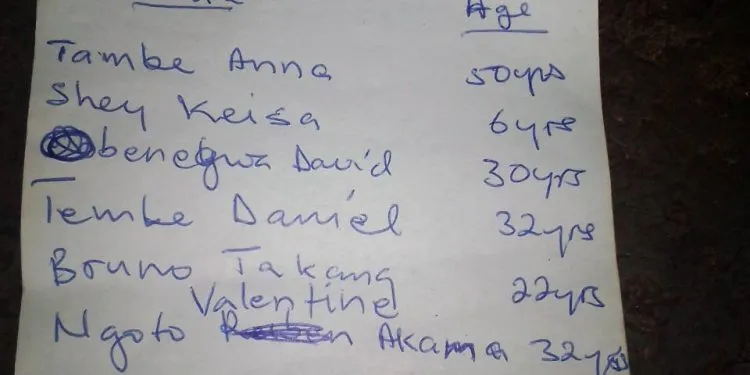 Age
Tambe Anna 50yrs
Shey Keisa 6yrs
benegwa David 30yrs
Tembe Daniel 32yrs
Bruno Takang
Valentine 22yrs
Ngoto Akama 32yrs